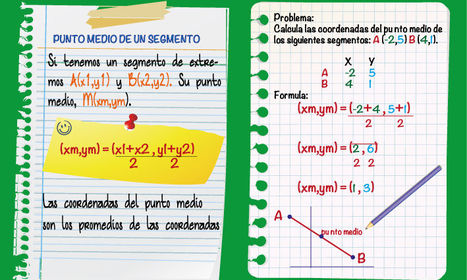 PUNTO MEDIO DE UN SEGMENTO
Si tenemos un segmento de extre-
mos A(x1,y1) y B(x2,y2). Su punto
medio, M(xm,ym).
(xm,ym) = (x1+x2 , y1+y2)
2 2
Las coordenadas del punto medio
son los promedios de las coordenadas
Problema:
Calcula las coordenadas del punto medio de
los siguientes segmentos: A (-2,5) B (4,1).
X Y
A -2 5
B 4 1
Formula:
(xm,ym) = (-2+4 , 5+1)
2 2
(xm,ym) = (2 , 6)
2 2
(xm,ym) = (1 , 3)
A
punto medio
B